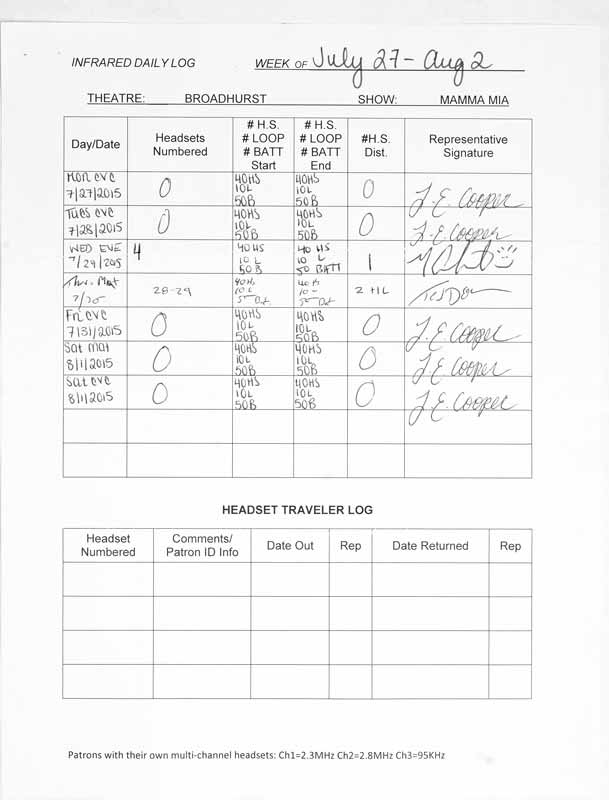 INFRARED DAILY LOG WEEK OF July 27 - Aug 2
THEATRE: BROADHURST SHOW: MAMMA MIA
Day/Date Headsets Numbered # H.S. # LOOP # BATT Start # H.S. # LOOP # BATT End #H.S. Dist. Representative Signature
Mon eve 7/27/2015 0 40HS 10L 50B 40HS 10L 50B 0 J. E. Cooper
Tues eve 7/28/2015 0 40HS 10L 50B 40HS 10L 50B 0 J. E. Cooper
WED EVE 7/29/205 4 40HS 10 L 50 B 40 HS 10 L 50 BATT 1
Thu. Mat 7/30 28-29 40H 10 L 40H 10- 2 +1L
Fri eve 7/31/2015 0 40HS 10L 50B 40HS 10L 50B 0 J. E. Cooper
Sat mat 8/1/2015 0 40HS 10L 50B 40HS 10L 50B 0 J. E. Cooper
Sat eve 8/1/2015 0 40HS 10L 50B 40HS 10L 50B 0 J. E. Cooper
HEADSET TRAVELER LOG
Headset Numbered Comments/ Patron ID Info Date Out Rep Date Returned Rep
Patrons with their own multi-channel headsets: Ch1=2.3MHz Ch2=2.8MHz Ch3=95KHz